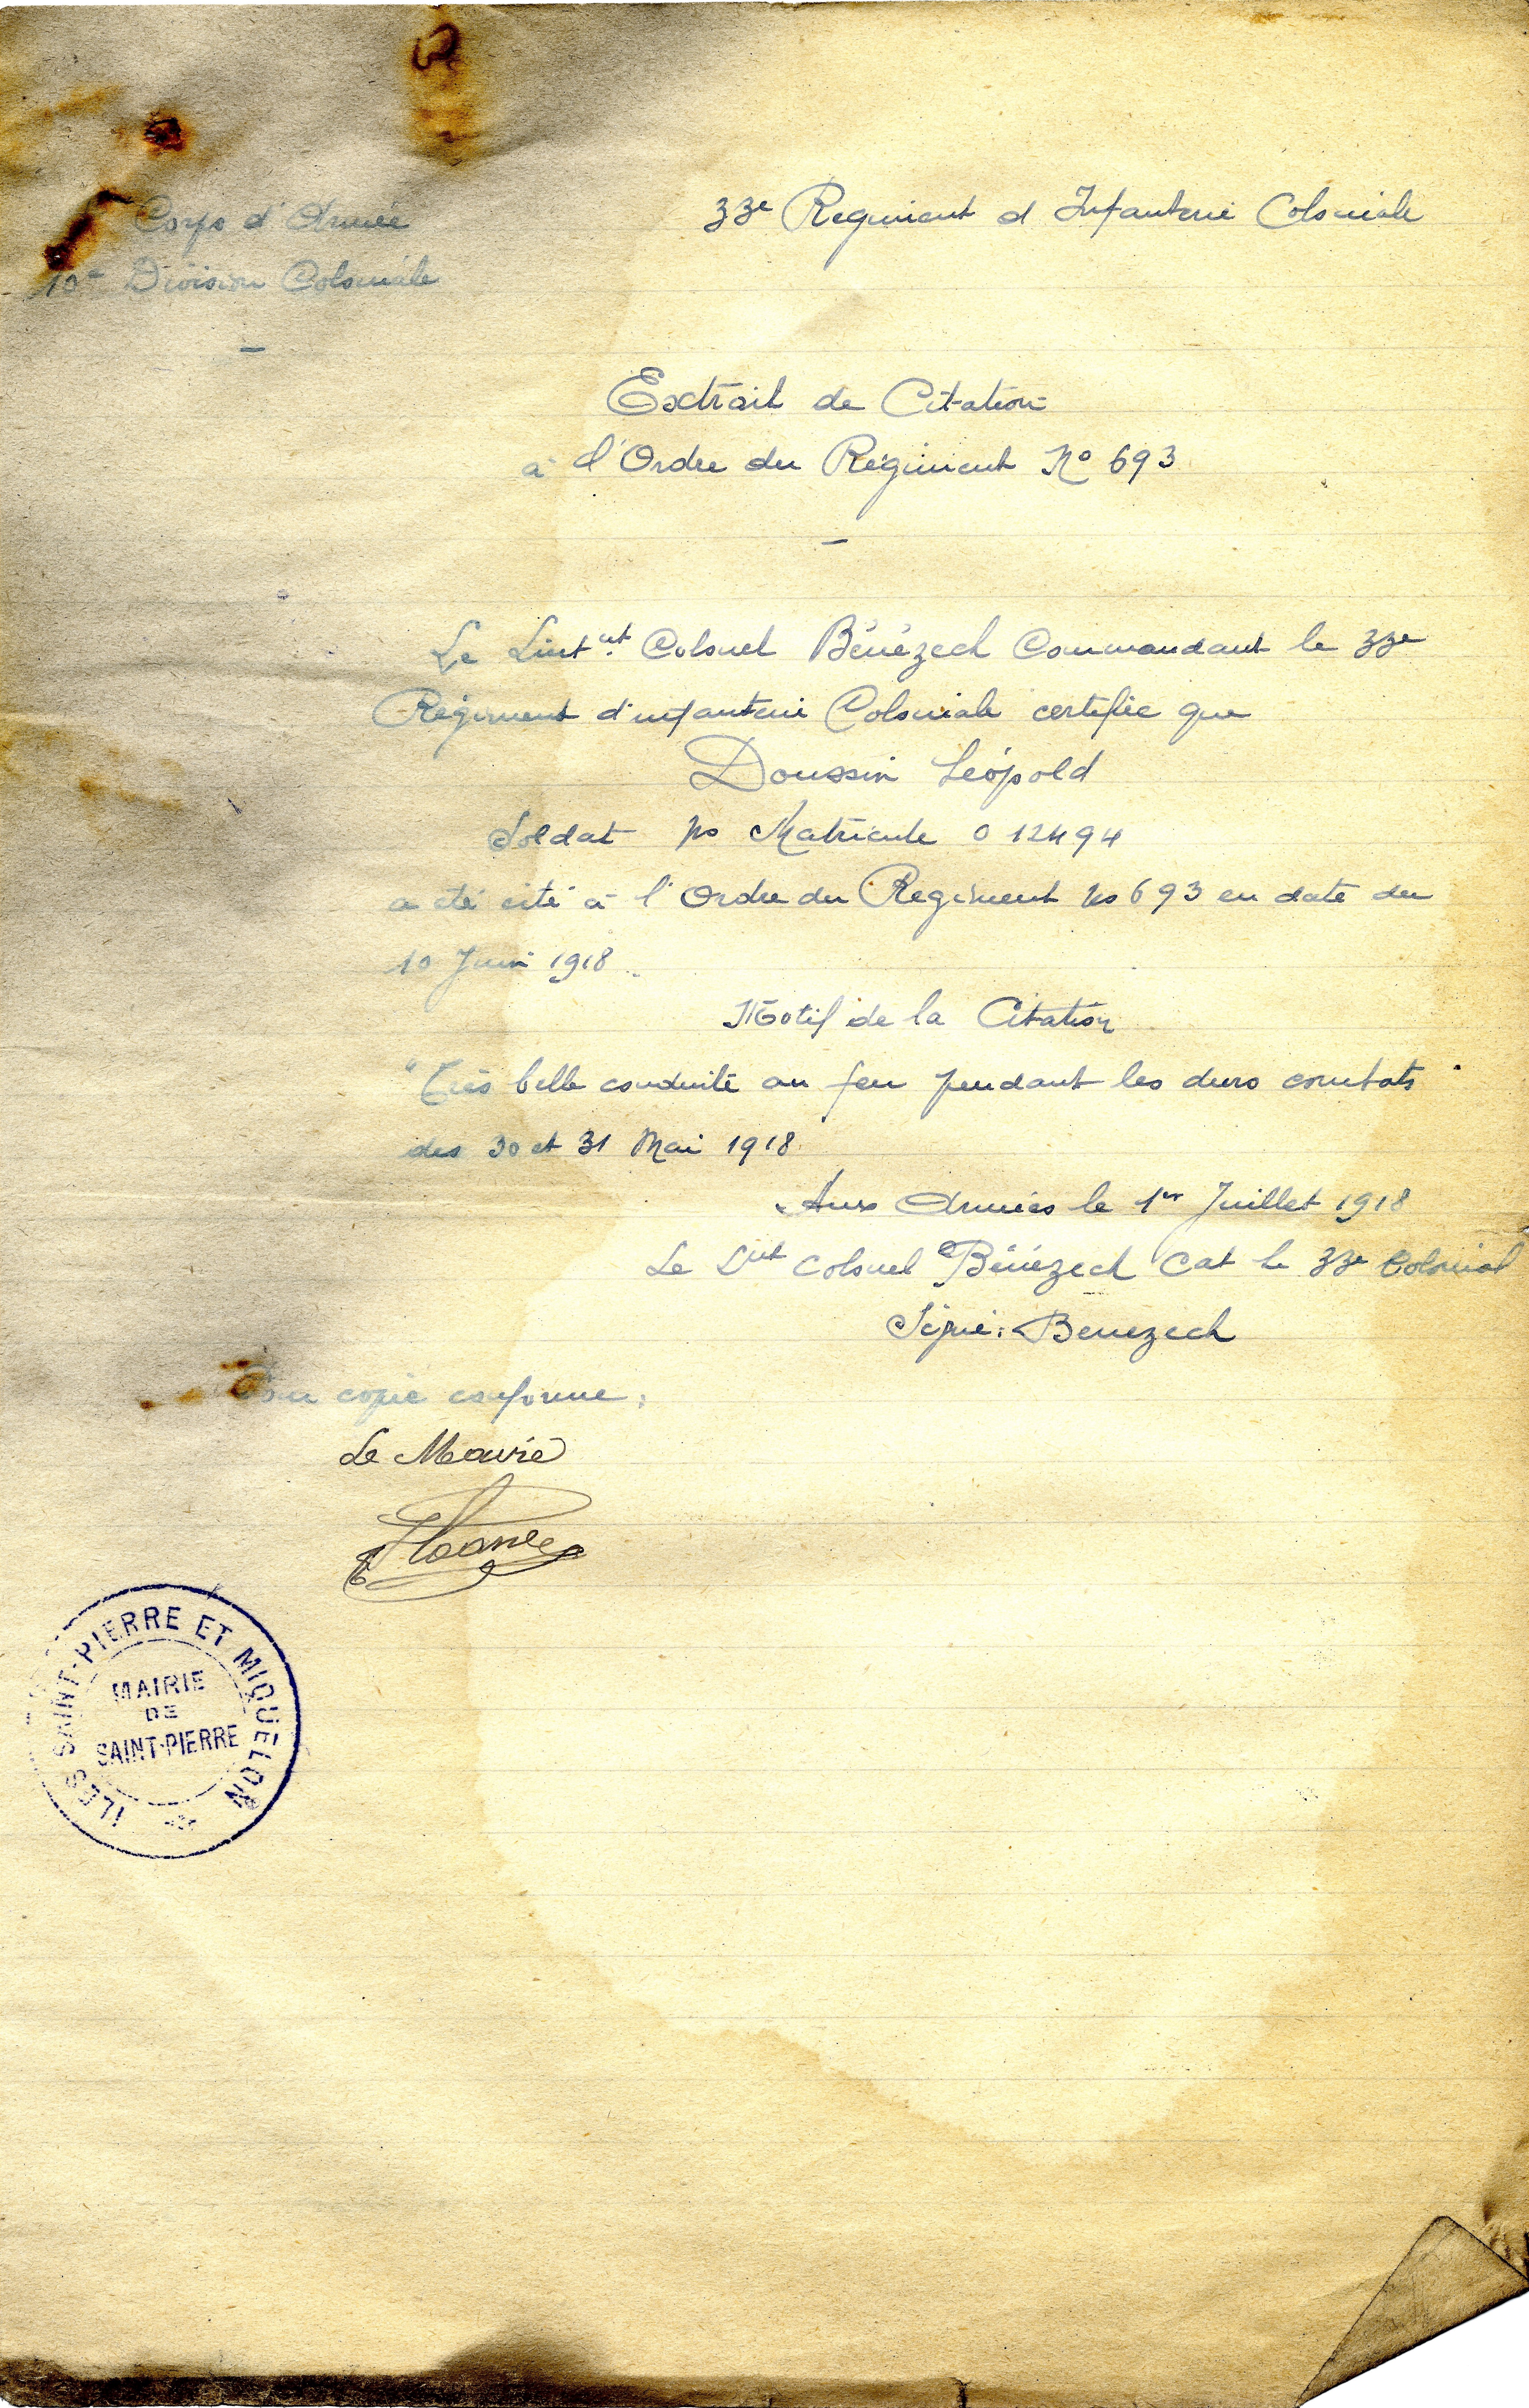 Corps d'Armée
10e Division Coloniale
33e Regiment d Infanterie Coloniale
Extrait de Citation
à l'Ordre du Régiment No 693
Le Lieut nt. Colonel Bénézech Commandant le 33e
Régiment d'infanterie Coloniale certifie que
Doussin Léopold
Soldat No Matricule 0 12494
a été cité à l'Ordre du Regiment No 693 en date du
10 Juin 1918.
Motif de la Citation
"Très belle conduite au feu pendant les durs combats
des 30 et 31 Mai 1918.
Aux Armées le 1er Juillet 1918
Le Lnt Colonel Bénézech Cat le 33e Colonial
Signé: Benezech
Pour copie conforme:
Le Maire
ILES SAINT-PIERRE ET MIQUELON
MAIRIE
DE
SAINT-PIERRE